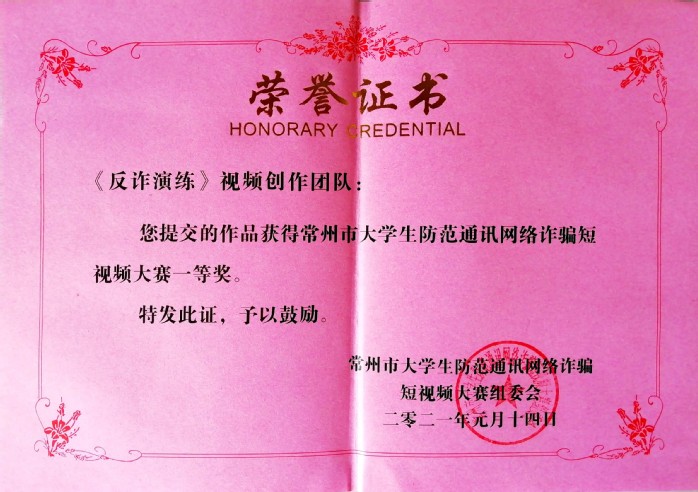 荣誉证书
HONORARY CREDENTIAL
《反诈演练》视频创作团队：
您提交的作品获得常州市大学生防范通讯网络诈骗短
视频大赛一等奖。
特发此证，予以鼓励。
常州市大学生防范通讯网络诈骗
短视频大赛组委会
二零二一年元月十四日